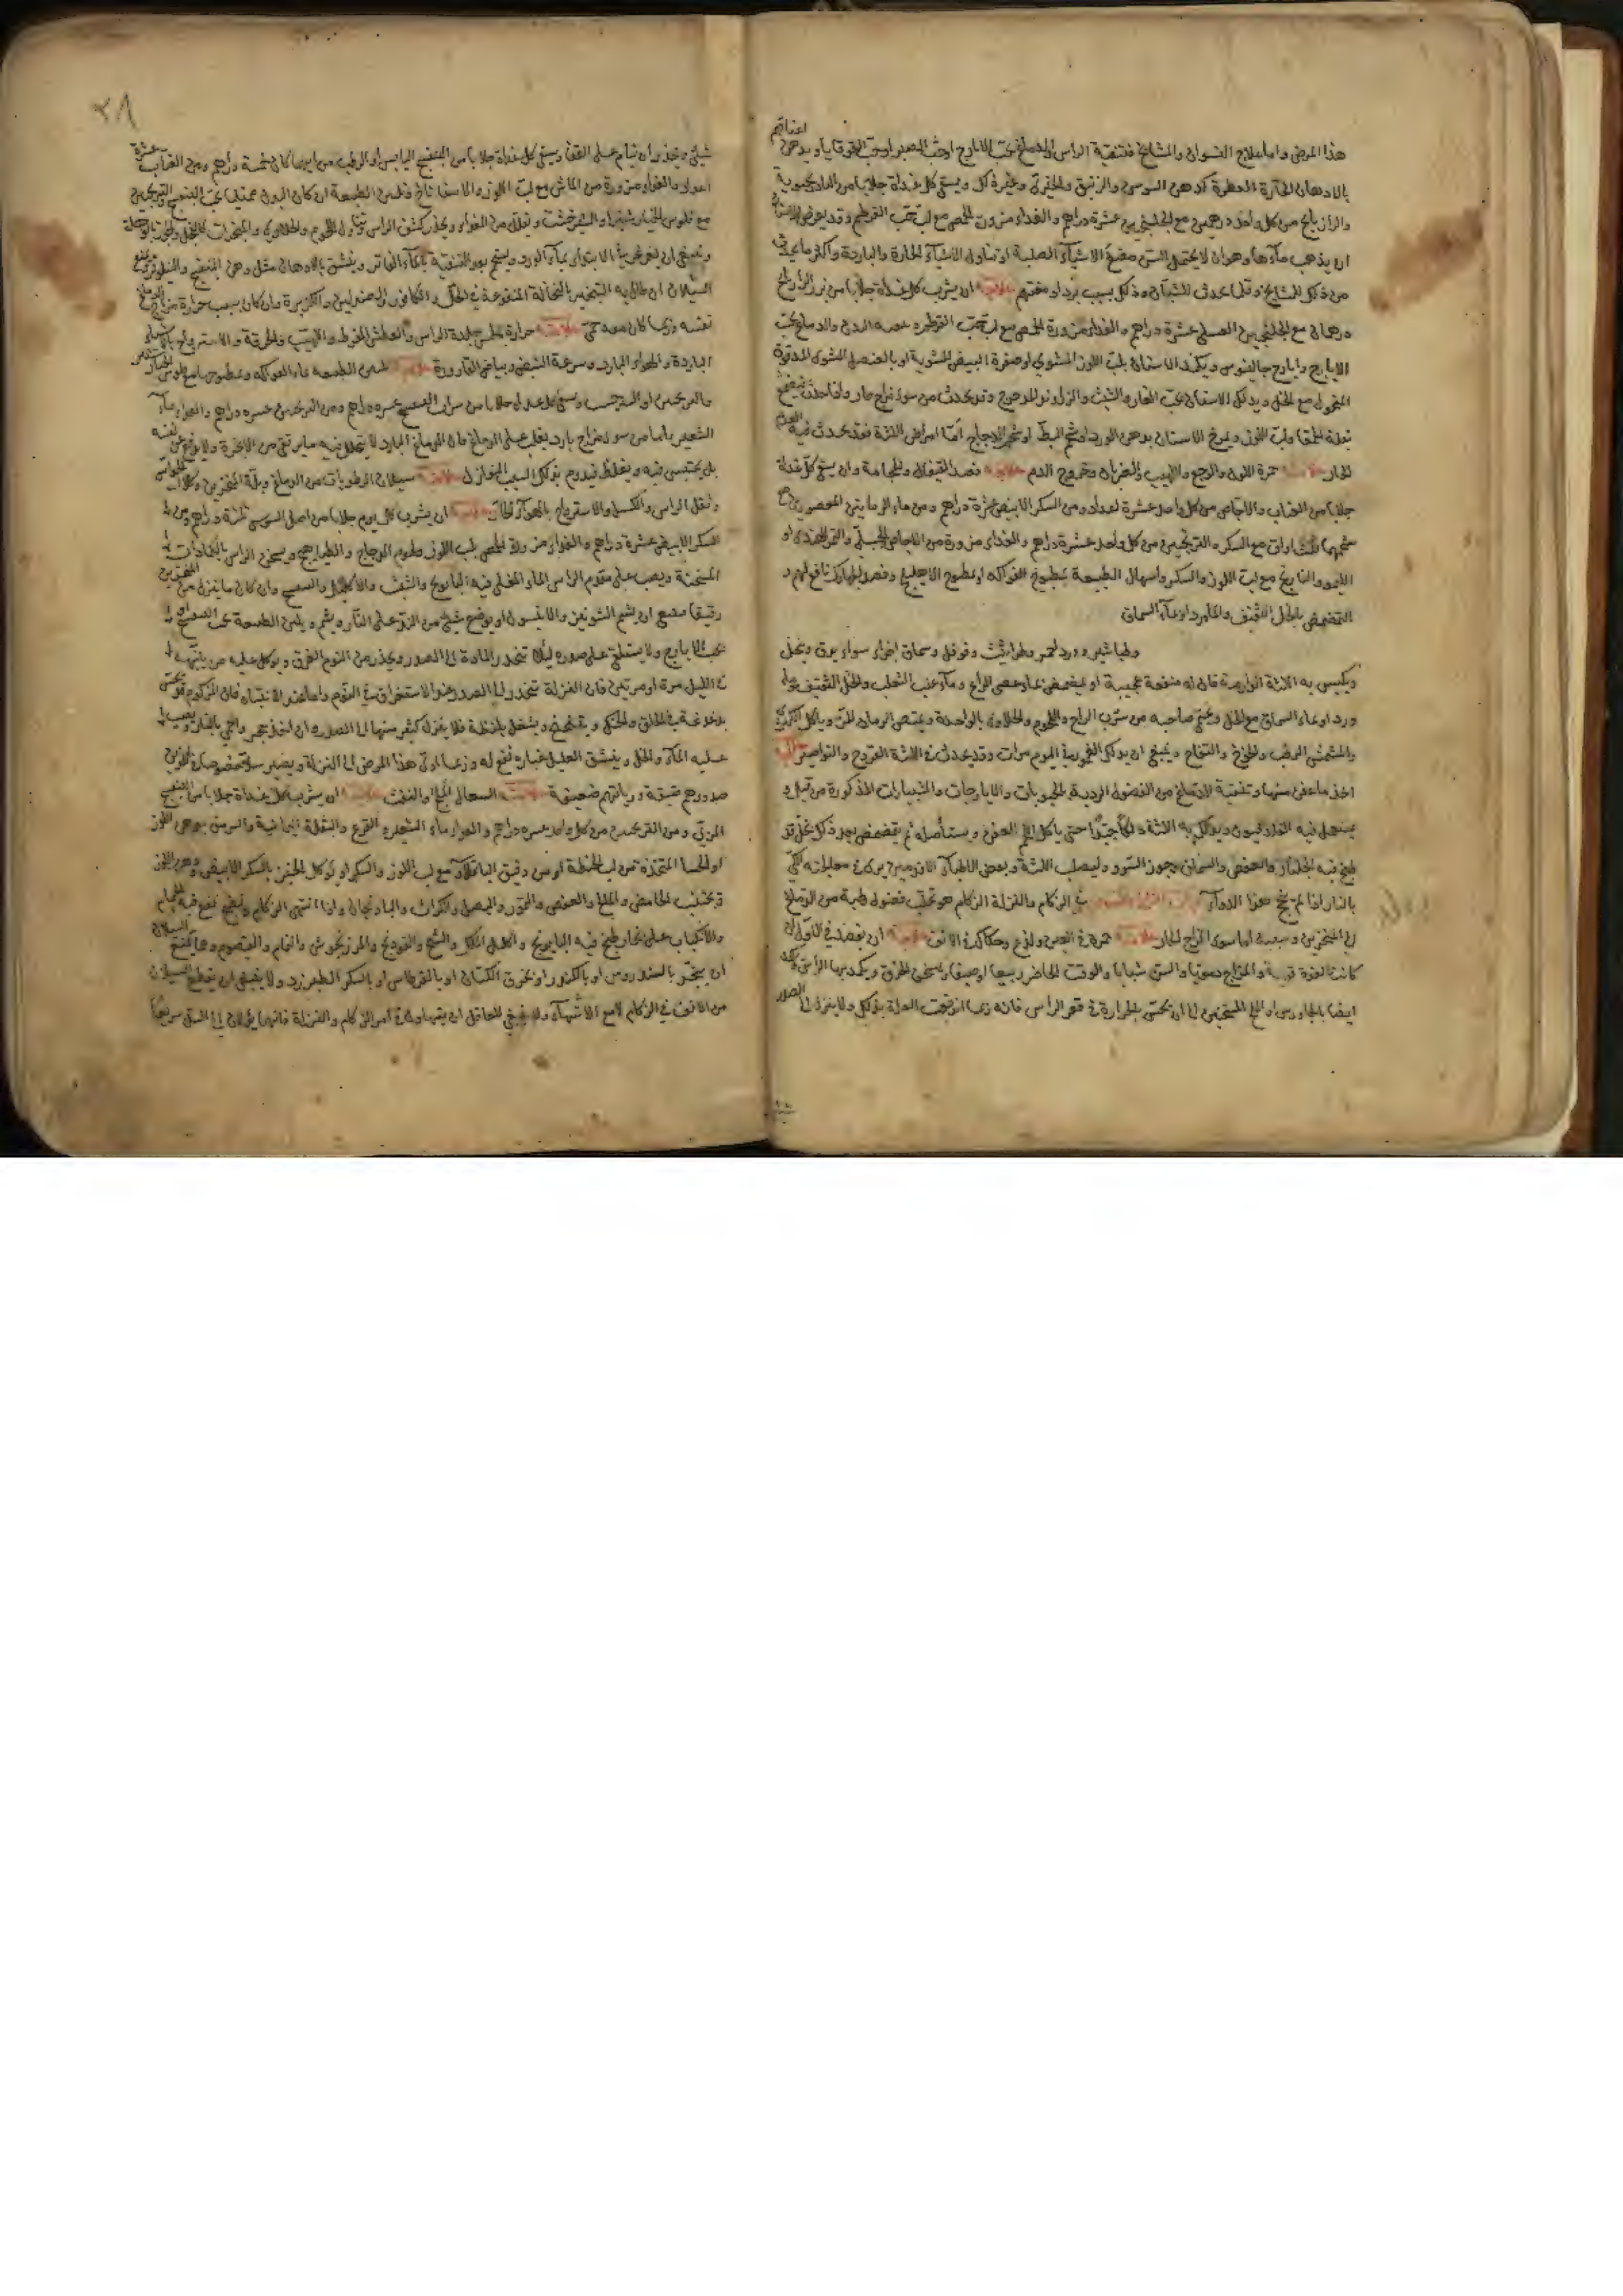 هذا المرض واما علاج النسوان والمشايخ فتنقية الراس والدماغ بحب الايارج او حب الصبر او حب القوقايا ويدهن اعناقهم
بالادهان الحارة العطرة كدهن السوسن والزنبق والخيري وغير ذلك ويسقى كل غداة جلابا من البادرنجبويه
والرازيانج من كل واحد درهمين مع الجلنجبين عشرة دراهم والغذاء مزورة الحمص مع لب حب القرطم وقد يعرض للاسنان
ان يذهب ماؤها وهو ان لا يحتمل السن مضغ الاشياء الصلبة او تناول الاشياء الحارة والباردة واكثر ما يحدث
من ذلك للمشايخ وقلما يحدث للشبان وذلك بسبب برد اد مغتهم علاجه ان يشرب كل غداة جلابا من بزر الرازيانج
درهمان مع الجلنجبين العسلي عشرة دراهم والغذاء مزورة الحمص مع لب حب القرطم والدماغ بحب
الايارج وايارج جالينوس ويكمد الاسنان بلب اللوز المشوي او صفرة البيض المشوية او بالعنصل المشوي المدقوق
المنخول مع الخل ويدلك الاسنان بحب الغار والشبث والزراوند المدحرج وقد يحدث من سوء مزاج حار
بقلة الحمقا ولب اللوز ويمرخ الاسنان بدهن الورد او شحم البط او شحم الدجاج اما امراض اللثة فقد يحدث فيه الورم
الحار علامته حمرة اللون والوجع واللهيب والضربان وخروج الدم علاجه فصد القيفال والحجامة وان يسقى كل غداة
جلابا من العناب والاجاص من كل واحد عشرة اعداد ومن السكر الابيض عشرة دراهم ومن ماء الرمانين المعصورين مع
شحمهما مع السكر والترنجبين من كل واحد عشرة دراهم والغذاء مزورة من الاجاص الجبلي والتمر الهندي او
الليمو والنارنج مع لب اللوز والسكر واسهال الطبيعة بمطبوخ الفواكه او مطبوخ الاهليلج وفصد الجهارك نافع لهم و
التمضمض بالخل الثقيف والماورد او ماء السماق
وطباشير وورد احمر وطراثيث وفوفل وسماق اجزاء سواء يدق وينخل
ويكبس به اللثة الوارمة فان له منفعة عجيبة او يتمضمض بماء عصي الراعي وماء عنب الثعلب والخل الثقيف
ورد او بماء السماق مع الخل ويحمى صاحبه من شرب الراح واللحوم والحلاوى بالواحدة ويمتص الرمان المز وياكل الكمثرى
والمشمش الرطب والخوخ والتفاح وينبغي ان يدلك في اليوم مرات وقد يحدث في اللثة القروح والنواصير علاجه
اخذ ما عفن منها وتنقية الادمغة من الفضول الردية بالحبوبات والايارجات والخيسارات المذكورة من قبل و
يستعمل فيه الفلدفيون ويدلك به اللثة دلكا جيدا حتى ياكل اللحم العفن ويستأصله ثم يتمضمض بعد ذلك بخل قد
طبخ فيه الجلنار والعفص والسماق وجوز السرو وليصلب اللثة وبعض الاطباء الاقدمين يرى في معالجته الكي
بالنار اذا لم ينجح هذا الدواء في الزكام والنزلة الزكام هو تحلب فضول رطبة من الدماغ
الى المنخرين وسببه اما سوء المزاج الحار علامته حمرة في العين ولذع وحكاك في الانف علاجه ان يفصد في الاول ان
كانت القوة قوية والمزاج دمويا والسن شبابا والوقت الحاضر ربيعا او صيفا ويسخن الخرق ويكمد بها الراس
ايضا بالجاورس او الملح المسخنين الى ان يحس بالحرارة في قعر الراس فانه ربما انقضت العلة بذلك ولا ينزل الى الصدر
٢٨
شيئ ويحذر ان ينام على القفا ويسقى كل غداة جلابا من البنفسج اليابس او الرطب من ايهما كان خمسة دراهم ومن العناب عشرة
اعداد والغذاء مزورة من الماش مع لب اللوز والاسفاناخ وتليين الطبيعة ان كان البدن ممتليا بحب البنفسج والترنجبين
مع فلوس الخيارشنبر والشيرخشت ويقلل من الغذاء ويحذر كشف الراس وتناول اللحوم والحلاوى والمبخرات
وينبغي ان يغرغر في الابتداء بماء الورد ويستحم بعد التنقية بالماء الفاتر وينشق بالادهان مثل دهن البنفسج والنيلوفر
السيلان ان طال به التبخير بالنخالة المنقوعة في الخل والكافور والصندلين والكزبرة وان كان بسبب حرارة مزاج الدماغ
نفسه وربما كان معه حمى علامته حرارة ملمس جلدة الراس والعطش المفرط واللهيب والحرقة والاسترواح بالاشياء
الباردة والهواء البارد وسرعة النبض وبياض القارورة علاجه تليين الطبيعة بماء الفواكه ومطبوخها مع فلوس الخيارشنبر
والترنجبين او الشيرخشت ويسقى كل غداة جلابا من شراب البنفسج عشرة دراهم ومن الترنجبين عشرة دراهم والغذاء ماء
الشعير واما من سوء مزاج بارد يغلب على الدماغ فان الدماغ البارد لا يتحلل فيه ما يرتقي من الابخرة
بل يحتبس فيه ويغلظ فيدوم بذلك السبب النوازل علامته سيلان الرطوبات من الدماغ وبلة المنخرين وكلال الحواس
وثقل الراس والكسل والاسترياح بالهواء الحار علاجه ان يشرب كل يوم جلابا من اصل السوس ثلثة دراهم ومن
السكر الابيض عشرة دراهم والغذاء مزورة الحمص بلب اللوز ولحوم الدجاج والطياهج ويسخن الراس بالكمادات
المسخنة ويصب على مقدم الراس الماء المغلي فيه البابونج والشبث والاكليل والبنفسج وان كان ما ينزل من المنخرين
رقيقا ينبغي ان يشم الشونيز والانيسون او يوضع شيئ من الند على النار ويشم ويلين الطبيعة بحب الصبر او
بحب الايارج ولا يستلقى على صدره ليلا تنحدر المادة الى الصدر ويحذر من النوم الغرق ويوكل عليه من ينبهه
في الليل مرة او مرتين فان النزلة تنحدر الى الصدر عند الاستغراق في النوم واما عند الانتباه فان المزكوم قد يحس
بدغدغة في الحلق والحنك ويتنحنح ويشتغل بلفظه فلا ينزل كثير منها الى الصدر او ان اخذ حجر واحمي بالنار ويصب
عليه الماء والخل وينشق العليل غباره نفع له وربما ادى هذا المرض الى النزلة ويصير سلا
صدورهم ضيقة وريائهم ضعيفة علامته السعال والنفث علاجه ان يشرب كل غداة جلابا من البنفسج
المربى ومن الترنجبين من كل واحد عشرة دراهم والغذاء ماء الشعير والقرع والبقلة اليمانية والسرمق بدهن اللوز
او الحسا المتخذة من لب الحنطة او من دقيق الباقلاء مع لب اللوز والسكر او يوكل الخبز بالسكر الابيض ودهن اللوز
ويجتنب الحامض والمالح والعفص والتمر والبصل والكراث والباذنجان واذا انتهى الزكام ونضج نفع فيه الحمام
والانكباب على بخار طبخ فيه البابونج واكليل الملك والشيح والفودنج والمرزنجوش والنمام والقيصوم ومما يمنع السيلان
ان يبخر بالسندروس او بالكندر او بخرق الكتان او بالقرطاس او بالسكر الطبرزد ولا ينبغي ان يقطع السيلان
من الانف في الزكام لا مع الاشتهاء ولا ينبغي للعاقل ان يتهاون في امر الزكام والنزلة فانهما يؤديان الى السل سريعا